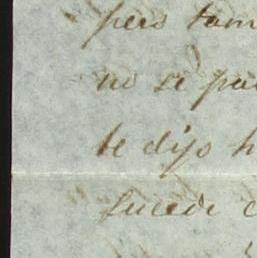 pero tam
no se pu
te dijo h
sucede c